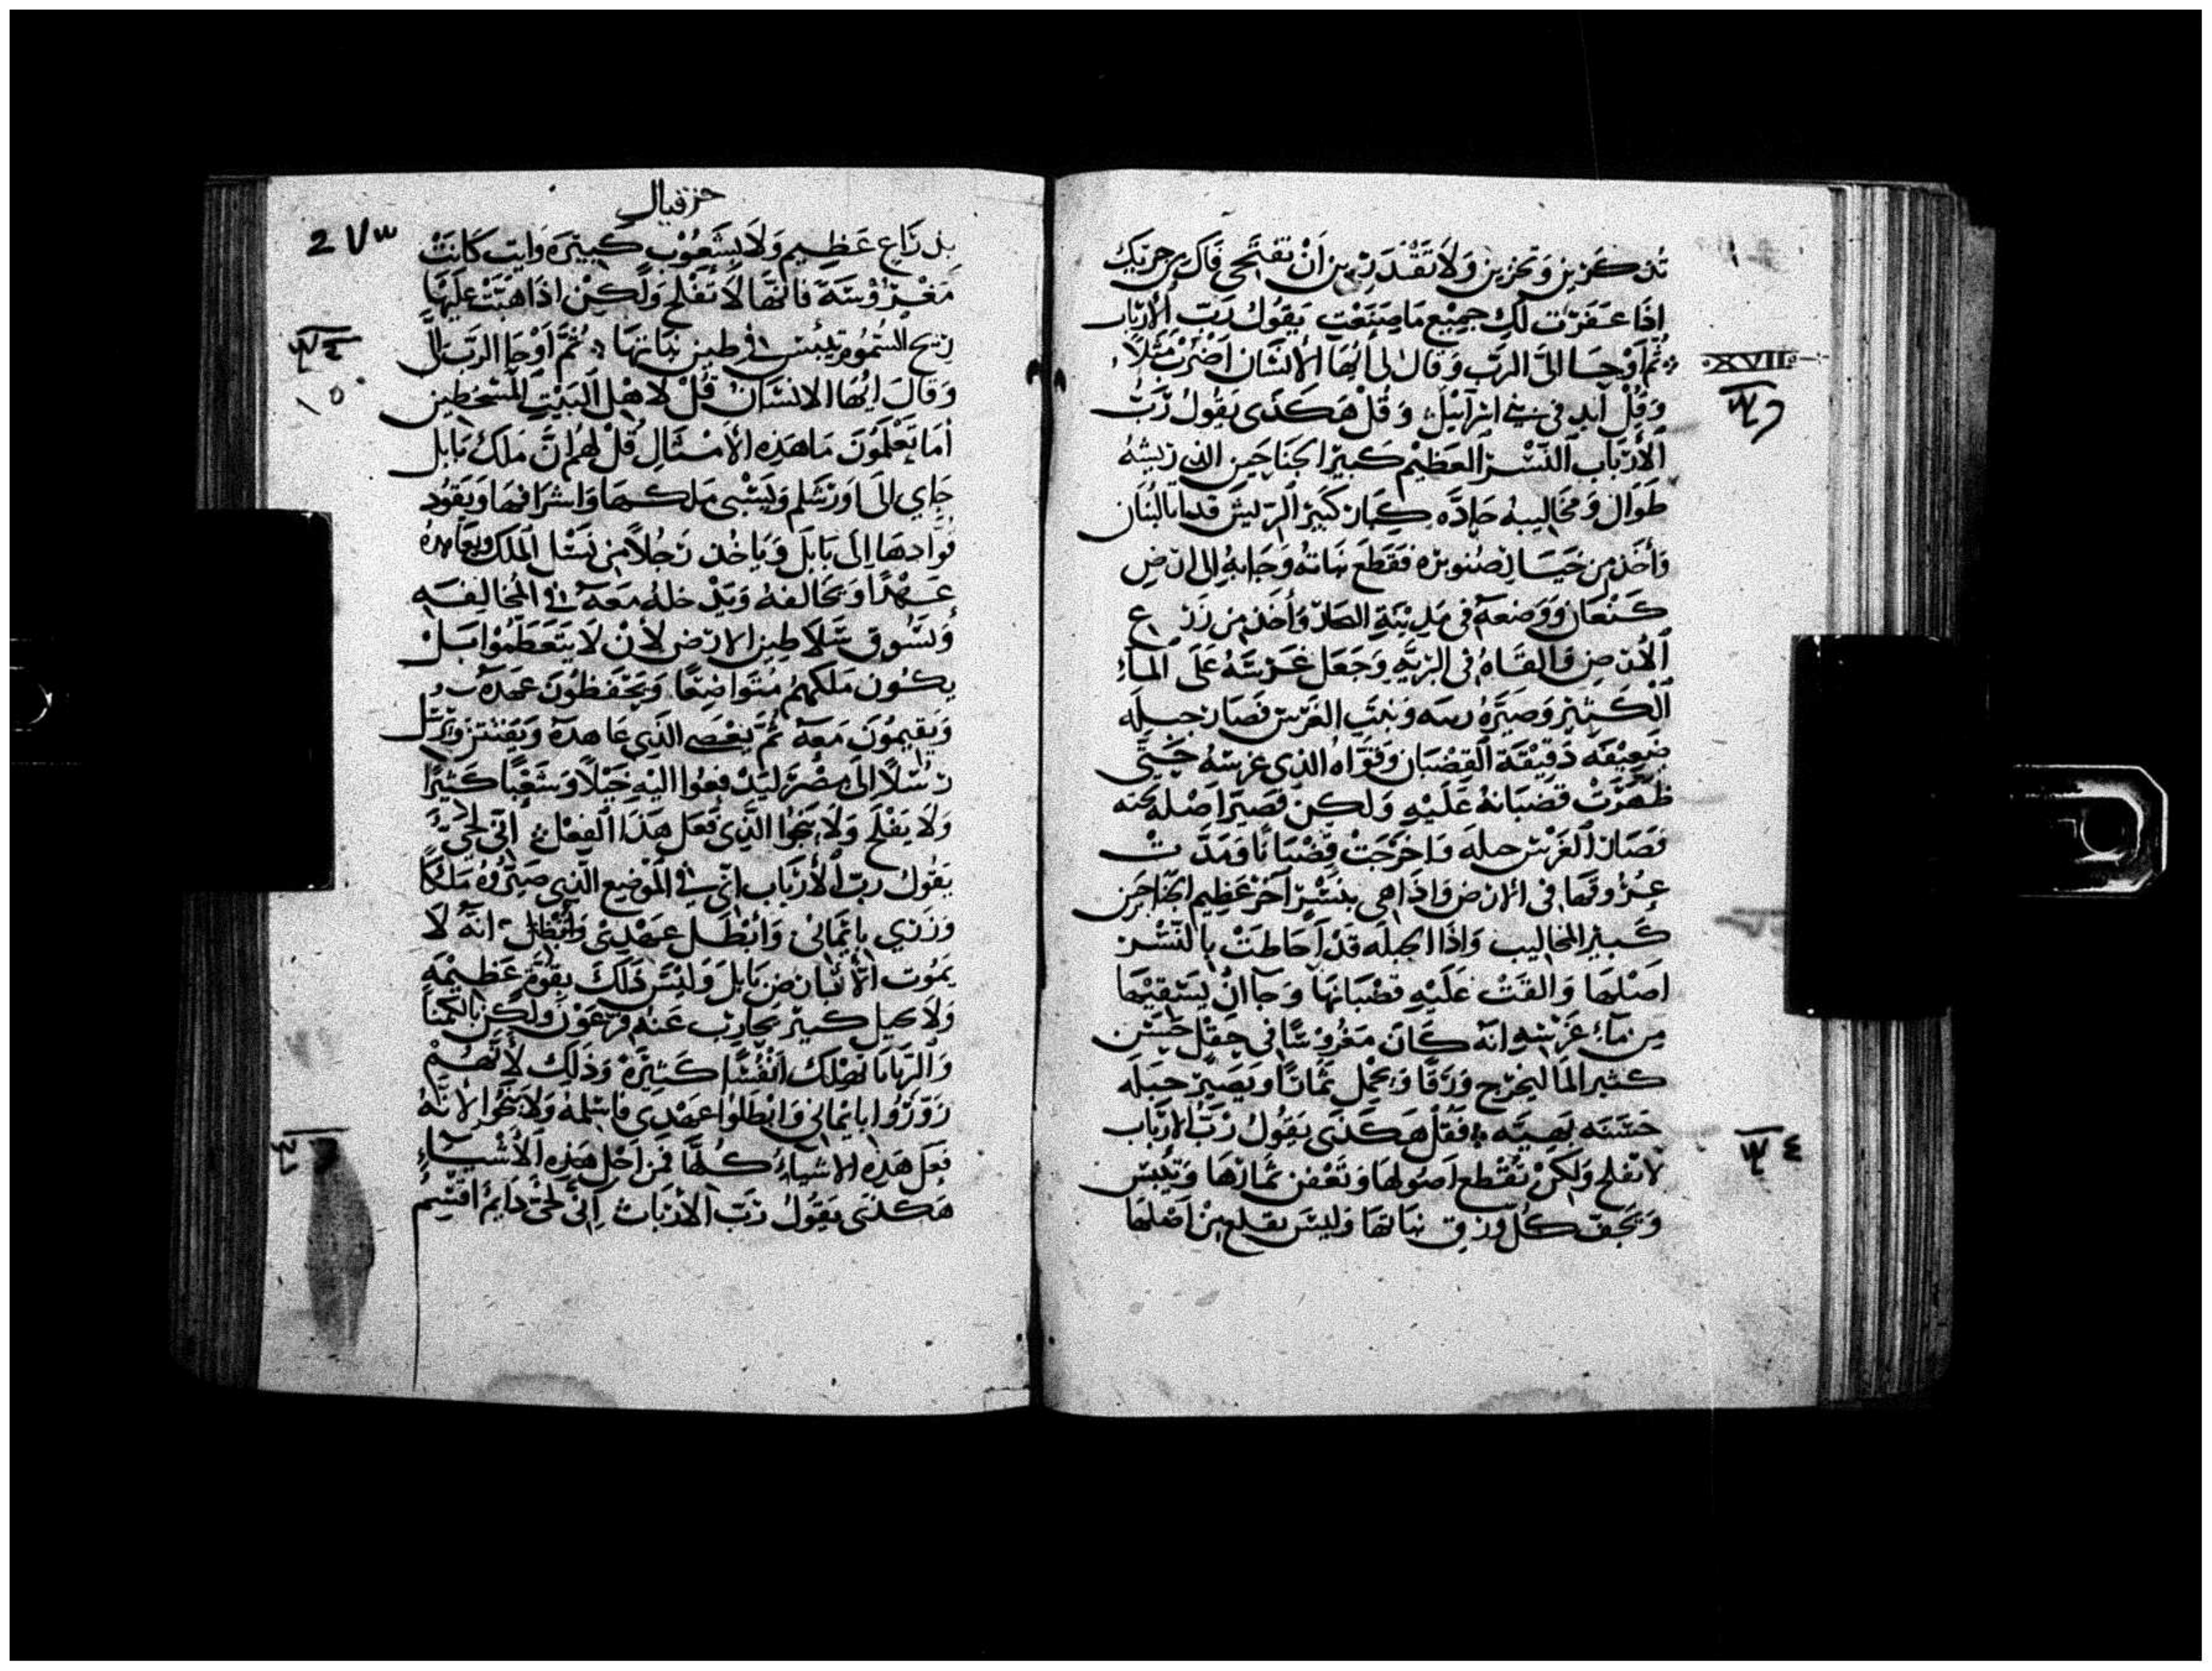 تذكرين وتخزين ولا تقدرين ان تفتحي فاك من خزيك
اذا غفرت لك جميع ما صنعت يقول رب الارباب
XVII
ثم اوحا الى الرب وقال لى ايها الانسان اضرب مثلا
وقل فى بني اسرائيل وقل هكذى يقول رب
الارباب النسر العظيم كبير الجناحين الذي ريشه
طوال ومخاليبه حاده كبار كبير الريش لبنان
واخذ من صنوبره فقطع نباته وجابه الى ارض
كنعان ووضعه فى مدينة واخذ من زرع
الارض والقاه فى الزريه وجعل غرسه على الماء
الكثير وصيره ونبت الغرس فصار حبله
ضعيفه دقيقة القضبان وقواه الذي غرسه حتى
ظهرت قضبانه عليه ولكن اصله تحته
فصار الغرس حبله واخرجت قضبانا ومدت
عروقها فى الارض واذا هي بنسر آخر عظيم الجناحين
كبير المخاليب واذا الحبله قد احاطت بالنسر
اصلها والقت عليه قضبانها وجا ان يسقيها
من ماء غرسه انه كان مغروسا فى حقل حسن
كثير الما ليخرج ورقا ويحمل ثمارا ويصير حبله
حسنه بهيه فقل هكذى يقول رب الارباب
٤
لا تفلح ولكن تقطع اصولها وتعفن ثمارها وتيبس
وتجف كل ورق نباتها وليس من اصلها
حزقيال
2 ٧٣
بذراع عظيم ولا بشعوب كبيره وان كانت
مغروسة فانها لا تفلح ولكن اذا هبت عليها
ريح السموم تيبس في طين نباتها ثم اوحا الرب الى
وقال ايها الانسان قل لاهل البيت المسخطين
اما تعلمون ما هذه الامثال قل لهم ان ملك بابل
جاي الى اورشلم ويسبى ملكها واشرافها ويقود
قوادها الى بابل وياخذ رجلا من نسل الملك ويعاهده
عهدا ويحالفه ويدخله معه في المخالفه
ويسوق سلاطين الارض لان لا يتعظموا بل
يكون ملكهم متواضعا ويحفظون عهده
ويقيمون معه ثم يعصي الذي عاهده ويرسل
رسلا الى مصر ليدفعوا اليه خيلا وشعبا كثيرا
ولا يفلح ولا ينجوا الذي فعل هذا الفعل انى لحى
يقول رب الارباب اني في الموضع الذي صيروه ملكا
وزري بايمانى وابطل عهدى انه لا
يموت الا بارض بابل وليس ذلك بقوة عظيمه
ولا كبير يحارب عنه فرعون ولكن
تهلك انفسا كثيره وذلك لانهم
زوروا بايماني وابطلوا عهدى ولا ينجوا لانه
فعل هذه الاشياء كلها فمن اجل هذه الاشياء
هكذى يقول رب الارباب انى لحى دايم اقسم